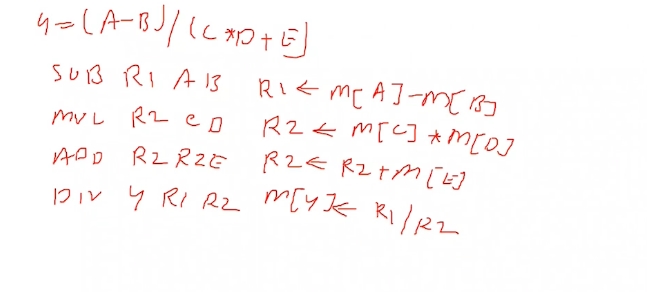 y=(A-B)/(C*D+E)
SUB R1 A B R1 ← M[A]-M[B]
MUL R2 C D R2 ← M[C] * M[D]
ADD R2 R2 E R2 ← R2+M[E]
DIV Y R1 R2 M[Y] ← R1/R2